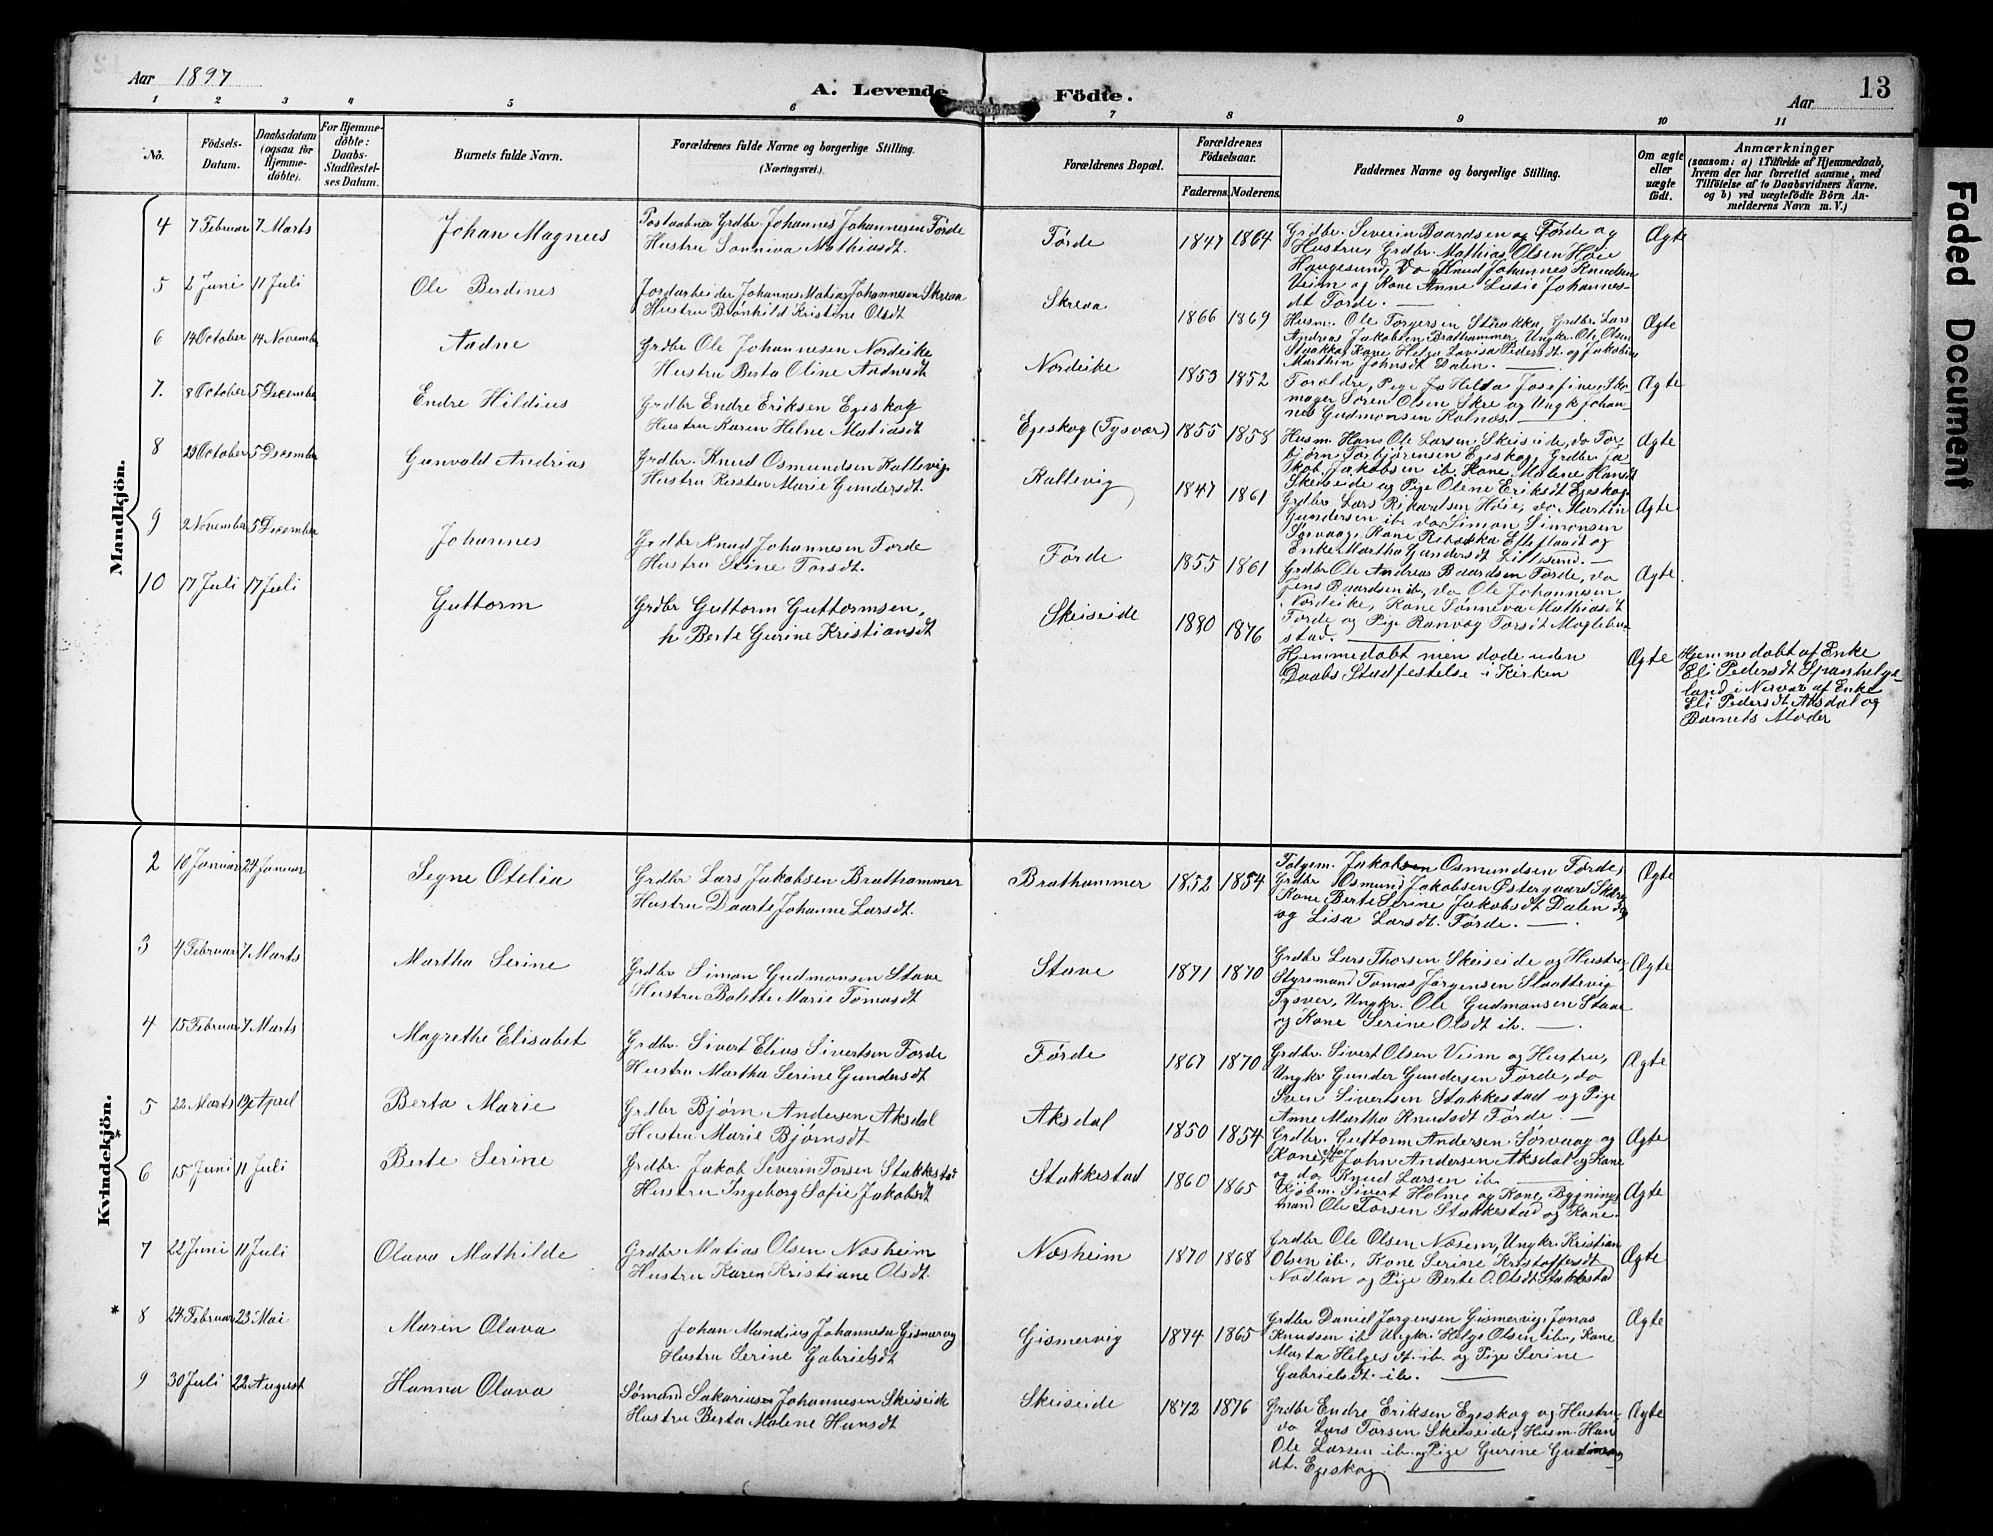 Aar 1897
A. Levende Födte.
Aar
13
1 2 3 4 5 6 7 8 9 10 11
No.
Födsels-Datum.
Daabsdatum (ogsaa for Hjemme-döbte).
For Hjemme-döbte: Daabs-Stadfæstel-ses Datum.
Barnets fulde Navn.
Forældrenes fulde Navne og borgerlige Stilling. (Næringsvei.)
Forældrenes Bopæl.
Forældrenes Födselsaar.
Faderens. Moderens.
Faddernes Navne og borgerlige Stilling.
Om ægte eller uægte födt.
Anmærkninger
(saasom: a) i Tilfælde af Hjemmedaab, hvem der har forrettet samme, med Tilföielse af to Daabsvidners Navne. og b) ved uægtefödte Börn An-melderens Navn m. V.)
Faded Document
Mandkjön.
4 7 Februar 7 Marts Johan Magnus
Postaabner Grdbr. Johannes Johannesen Förde
Hustru Sønniva Mathiasdt.
Førde 1847 1864
Grdbr. Severin Baardsen og Førde og
Hustru, Grdbr. Mathias Olsen Høie
Haugesund, do Knud Johannes Knudsen
Veim og Kone Anne Lusie Johannes-
dt Førde. —
Ægte
5 2 Juni 11 Juli Ole Berdines
Jordarbeider Johannes Matias Johannesen Skrea
Hustru Brønhild Kristine Olsdt
1866 1869
Husm. Ole Torgersen Staakka, Grdbr. Lars
Andreas Jakobsen Brathammer, Ungkr. Ole Olsen
Staakka, Kone Helga Lovisa Pedersdt. og Jakobine
Marthin Johnsdt Dalen. —
Ægte
6 14 October 14 November Aadne
Grdbr Ole Johannesen Nordeike
Hustru Berta Oline Aadnesdt
Nordeike 1853 1852
Forældre, Pige Helda Josefine, Sko-
mager Søren Olsen Skre og Ungk Johan-
nes Gudmonsen Kalnæs. —
Ægte
7. 8 October 5 December Endre Hildius
Grdbr Endre Eriksen Egeskog
Hustru Karen Helne Matiasdt
Egeskog (Tysvær) 1855 1858
Husm. Hans Ole Larsen Skeiseide, do Tor
bjørn Torbjørnsen Egeskog, Grdbr. Ja-
kob Jakobsen ib. Kone Malene Hansdt
Skeiseide og Pige Olene Eriksdt Egeskog
Ægte
8 23 October 5 December Gunvald Andrias
Grdbr. Knud Osmundsen Kallevig
Hustru Kirsten Marie Gundersdt.
Kallevig 1847 1861
Grdbr. Lars Rikardsen Høie, do Martin
Gundersen ib. do Simon Simonsen
Sørvaag, Kone Rebekka
Enke Martha Gundersdt Lillesund. —
Ægte
9 2 November 5 December Johannes
Grdbr Knud Johannesen Førde
Hustru Seine Torsdt.
Førde 1855 1861
Grdbr Ole Andreas Baardsen Førde, do
Jens Baardsen ib., do Ole Johannesen
Nordeike, Kone Sønneva Mathiasdt
Førde og Pige Ranvog Torsdt
stad.
Ægte
10 17 Juli 17 Juli Guttorm
Grdbr Guttorm Guttormsen,
h Berte Gurine Kristiansdt
Skeiseide 1880 1876
Hjemmedøbt men døde uden
Daabs Stadfestelse i Kirken
Ægte
Hjemmedøbt af Enke
Eli Pedersdt Spanhelge-
land i Nærvær af Enke
Eli Pedersdt Aksdal og
Barnets Moder
Kvindekjön.
2 10 Januar 24 Januar Segne Otelia
Grdbr Lars Jakobsen Brathammer
Hustru Daarte Johanne Larsdt.
Brathammer 1852 1854
Følgem. Jakobsen Osmundsen Førde,
Grdbr Osmund Jakobsen Østergaard Skåre
Kone Berte Serine Jakobsdt Dalen
og Lisa Larsdt. Førde. —
Ægte
3 4 Februar 7 Marts Martha Serine
Grdbr Simon Gudmonsen Stave
Hustru Bolette Marie Tomasdt
Stave 1871 1870
Grdbr Lars Thorsen Skeiseide og Hustru,
Styremand Tomas Jørgensen Slaattevig
Tysver, Ungkr. Ole Gudmonsen Stave
og Kone Serine Olsdt ib. —
Ægte
4 15 Februar 7 Marts Magrethe Elisabet
Grdbr. Sivert Elius Sivertsen Førde
Hustru Martha Serine Gundersdt
Førde 1867 1870
Grdbr. Sivert Olsen Veim og Hustru,
Ungkr Gunder Gundersen Førde, do
Sven Sivertsen Stakkestad og Pige
Anne Martha Knudsdt Førde. —
Ægte
5 22 Marts 19 April Berta Marie
Grdbr Bjørn Andersen Aksdal
Hustru Marie Bjørnsdt
Aksdal 1850 1854
Grdbr. Guttorm Andersen Sørvaag og
Kone, do John Andersen Aksdal og Kone
og do Knud Larsen ib. —
Ægte
6 15 Juni 11 Juli Berte Serine
Grdbr. Jakob Severin Torsen Stakkestad
Hustru Ingeborg Sofie Jakobsdt
Stakkestad 1860 1865
Kjøbm. Sivert Holme og Kone, Bygnings
mand Ole Torsen Stakkestad og Kone.
Ægte
7 22 Juni 11 Juli Olava Mathilde
Grdbr Matias Olsen Næsheim
Hustru Karen Kristiane Olsdt.
Næsheim 1870 1868
Grdbr Ole Olsen Næsem, Ungkr. Kristian
Olsen ib., Kone Serine Kristoffersdt
Nodlan og Pige Berte O. Olsdt Stakkestad
Ægte
8 24 Februar 23 Mai Maren Olava
Johan Mandius Johannesen Gismervig
Hustru Serine Gabrielsdt
Gismervig 1874 1865
Grdbr Daniel Jørgensen Gismervig, Jonas
Knudsen ib. Ungkr. Helge Olsen ib., Kone
Marta Helgesdt. ib. og Pige Serine
Gabrielsdt. ib. —
Ægte
9 30 Juli 22 August Hanna Olava
Sømand Sakarias Johannesen Skeiseide
Hustru Berta Malene Hansdt
Skeiseide 1872 1876
Grdbr Endre Eriksen Egeskog og Hustru,
do Lars Torsen Skeiseide, Husm. Han
Ole Larsen ib. og Pige Gurine
dt. Egeskog —
Ægte